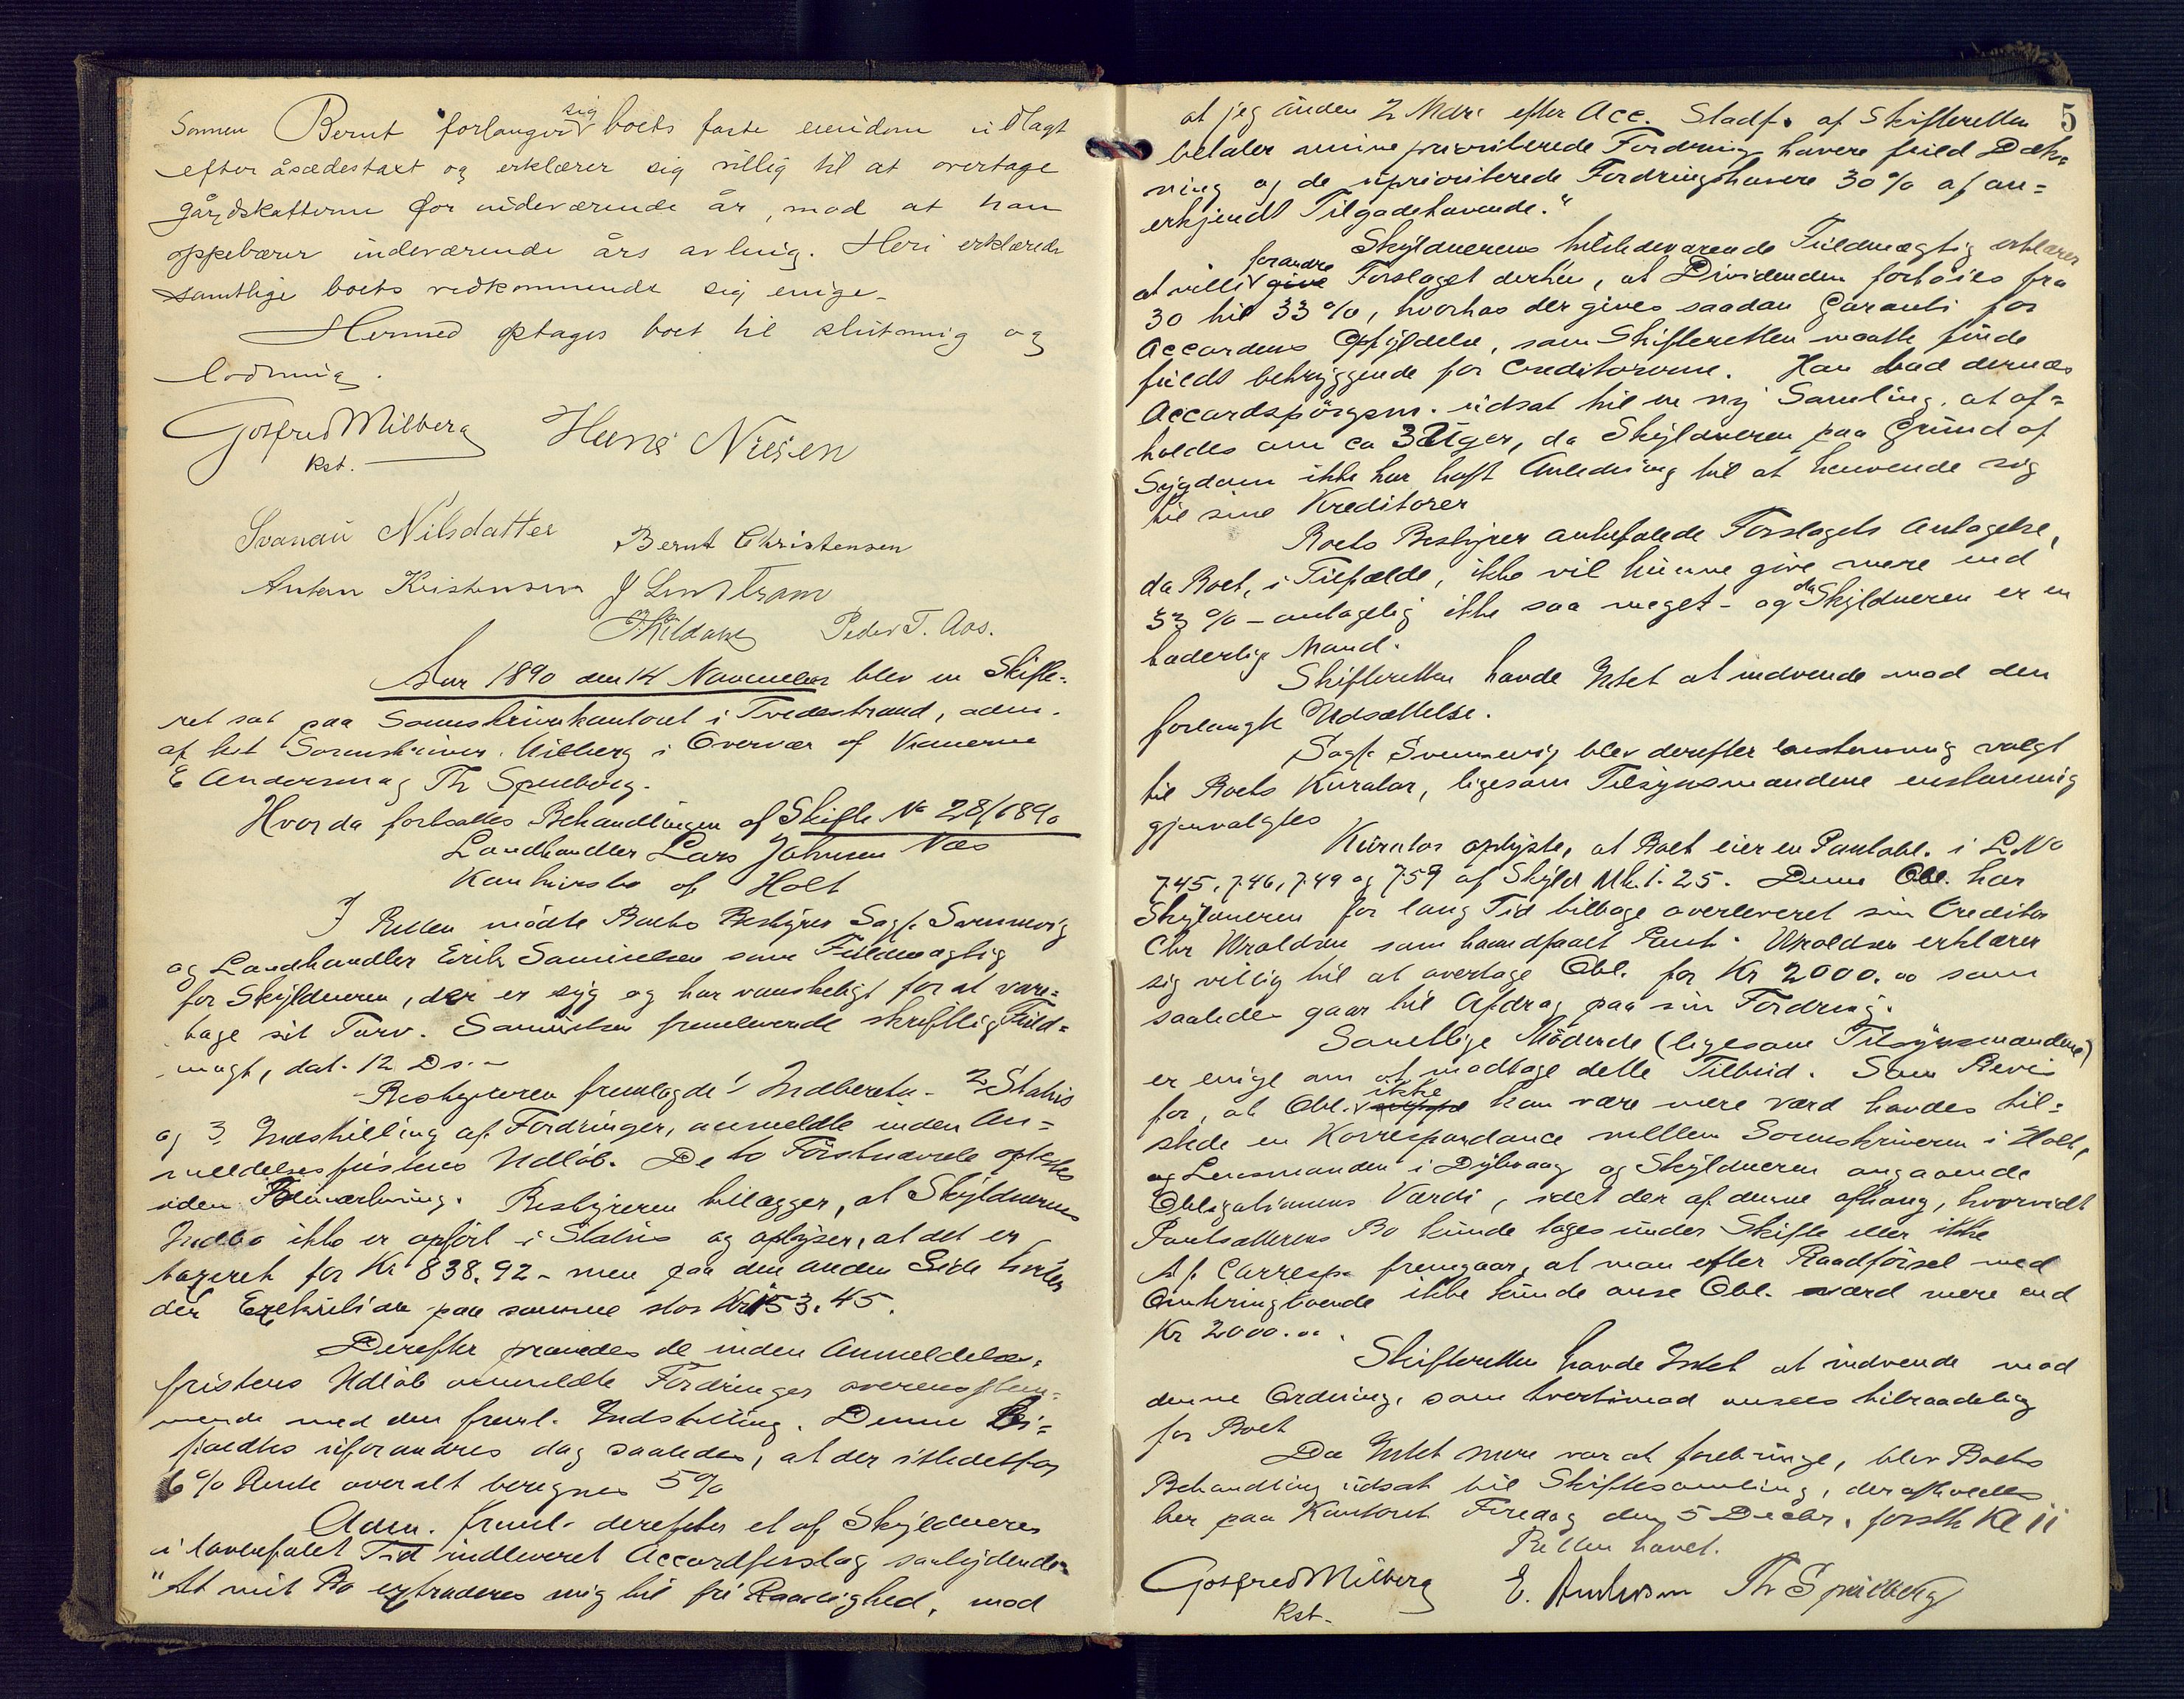 Sønnen Bernt forlanger sig boets faste eiendom udlagt
efter åsædestaxt og erklærer sig villig til at overtage
gårdskatterne for indeværende år, mod at han
oppebærer indeværende års avling. Heri erklærede
samtlige boets vedkommende sig enige.
Hermed optages boet til slutning og
lodning.
Gotfred Milberg Hans Nilsen
Kst.
Svanau Nilsdatter Bernt Christensen
Anton Kristensen J Lindstrøm
Peder T. Aas.
Aar 1890 den 14 November blev en Skifte-
ret sat paa Sorenskriverkontoret i Tvedestrand, adm.
af kst Sorenskriver Milberg i Overvær af Vidnerne
E Anderson og Th Spilberg.
Hvorda fortsattes Behandlingen af Skifte No 28/1890
Landhandler Lars Johnsen Næs
Konkursbo af Holt
I Retten mødte Boets Bestyrer Sagf. Svennevig
og Landhandler Erik Samuelsen som Fuldmægtig
for Skyldneren, der er syg og har vanskeligt for at vare=
tage sit Tarv. Samuelsen fremleverede skriftlig Fuld=
magt, dat. 12 Ds.-
Bestyreren fremlagde 1 Indberetn. 2 Status
og 3. Indstilling af Fordringer, anmeldte inden An=
meldelsesfristens Udløb. De to Førstnævnte oplæstes
uden Bemærkning. Bestyreren tillægger, at Skyldnerens
Indbo ikke er opført i Status og oplyser, at det er
taxeret for Kr 838.92 - men paa den anden Side hviler
der Exekution paa samme stor Kr 153.45.
Derefter prøvedes de inden Anmeldelses-
fristens Udløb anmeldte Fordringer overensstem-
mende med den freml. Indstilling. Denne Bi=
faldtes uforandret dog saaledes, at der istedetfor
6% Rente overalt beregnes 5%
Adm. freml. derefter et af Skyldneren
i lovbefalet Tid indleveret Accordforslag saalydende
"At mit Bo extraderes mig til fri Raadighed, mod
5
at jeg inden 2 Mdr. efter Acc. Stadf. af Skifteretten
betaler mine prioriterede Fordringshavere fuld Dæk=
ning og de uprioriterede Fordringshavere 30% af an=
erkjendt Tilgodehavende."
Skyldnerens tilstedeværende Fuldmægtig erklærer
at ville forandre give Forslaget derhen, at Dividenden forhøies fra
30 til 33%, hvorhos der gives saadan Garanti for
Accordens Opfyldelse, som Skifteretten maatte finde
fuldt betryggende for Creditorerne. Han bad dernæst
Accordspørgsm. udsat til en ny Samling, at af=
holdes om ca 3 Uger, da Skyldneren paa Grund af
Sygdom ikke har haft Anledning til at henvende sig
til sine Kreditorer
Boets Bestyrer anbefalede Forslagets Antagelse,
da Boet, i Tilfælde, ikke vil kunne give mere end
33% - antagelig ikke saa meget - og da Skyldneren er en
hæderlig Mand.
Skifteretten havde Intet at indvende mod den
forlangte Udsættelse.
Sagf. Svennevig blev derefter enstemmig valgt
til Boets Kurator, ligesom Tilsynsmændene enstemmig
gjenvalgtes
Kurator oplyste, at Boet eier en Pantobl. i LNo
745, 746, 749 og 759 af Skyld Mk. 1.25. Denne Obl. har
Skyldneren for lang Tid tilbage overleveret sin Creditor
Chr Uroldsen som haandfaaet Pant. Uroldsen erklærer
sig villig til at overtage Obl. for Kr 2000.00 som
saaledes gaar til Afdrag paa sin Fordring.
Samtlige Mødende (ligesom Tilsynsmændene)
er enige om at modtage dette Tilbud. Som Bevis
for, at Obl. ikke kan være mere værd havdes til=
stede en Korrespondance mellem Sorenskriveren i Holt,
og Lensmanden i Dybvaag og Skyldneren angaaende
Obligationens Værdi, idet der af denne afhang, hvorvidt
Pantsætterens Bo kunde tages under Skifte eller ikke
Af Corresp. fremgaar, at man efter Raadførsel med
Omkringboende ikke kunde anse Obl. værd mere end
Kr 2000.00.
Skifteretten havde Intet at indvende mod
denne Ordning, som tvertimod ansees tilraadelig
for Boet
Da Intet mere var at frebringe, blev Boets
Behandling udsat til Skiftesamling, der afholdes
her paa Kontoret Fredag den 5 Decbr. førstk Kl 11
Retten hævet.
Gotfred Milberg E. Anderson Th Spilberg
Kst.